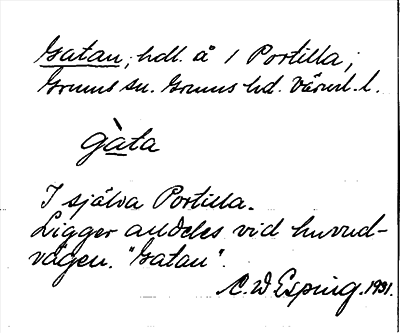 Gatan, hdl. å 1 Portilla,
Grums sn. Grums hd. Värml. l.
gàta
I själva Portilla.
Ligger alldeles vid huvud-
vägen. "Gatan".
C. W Esping. 1931.